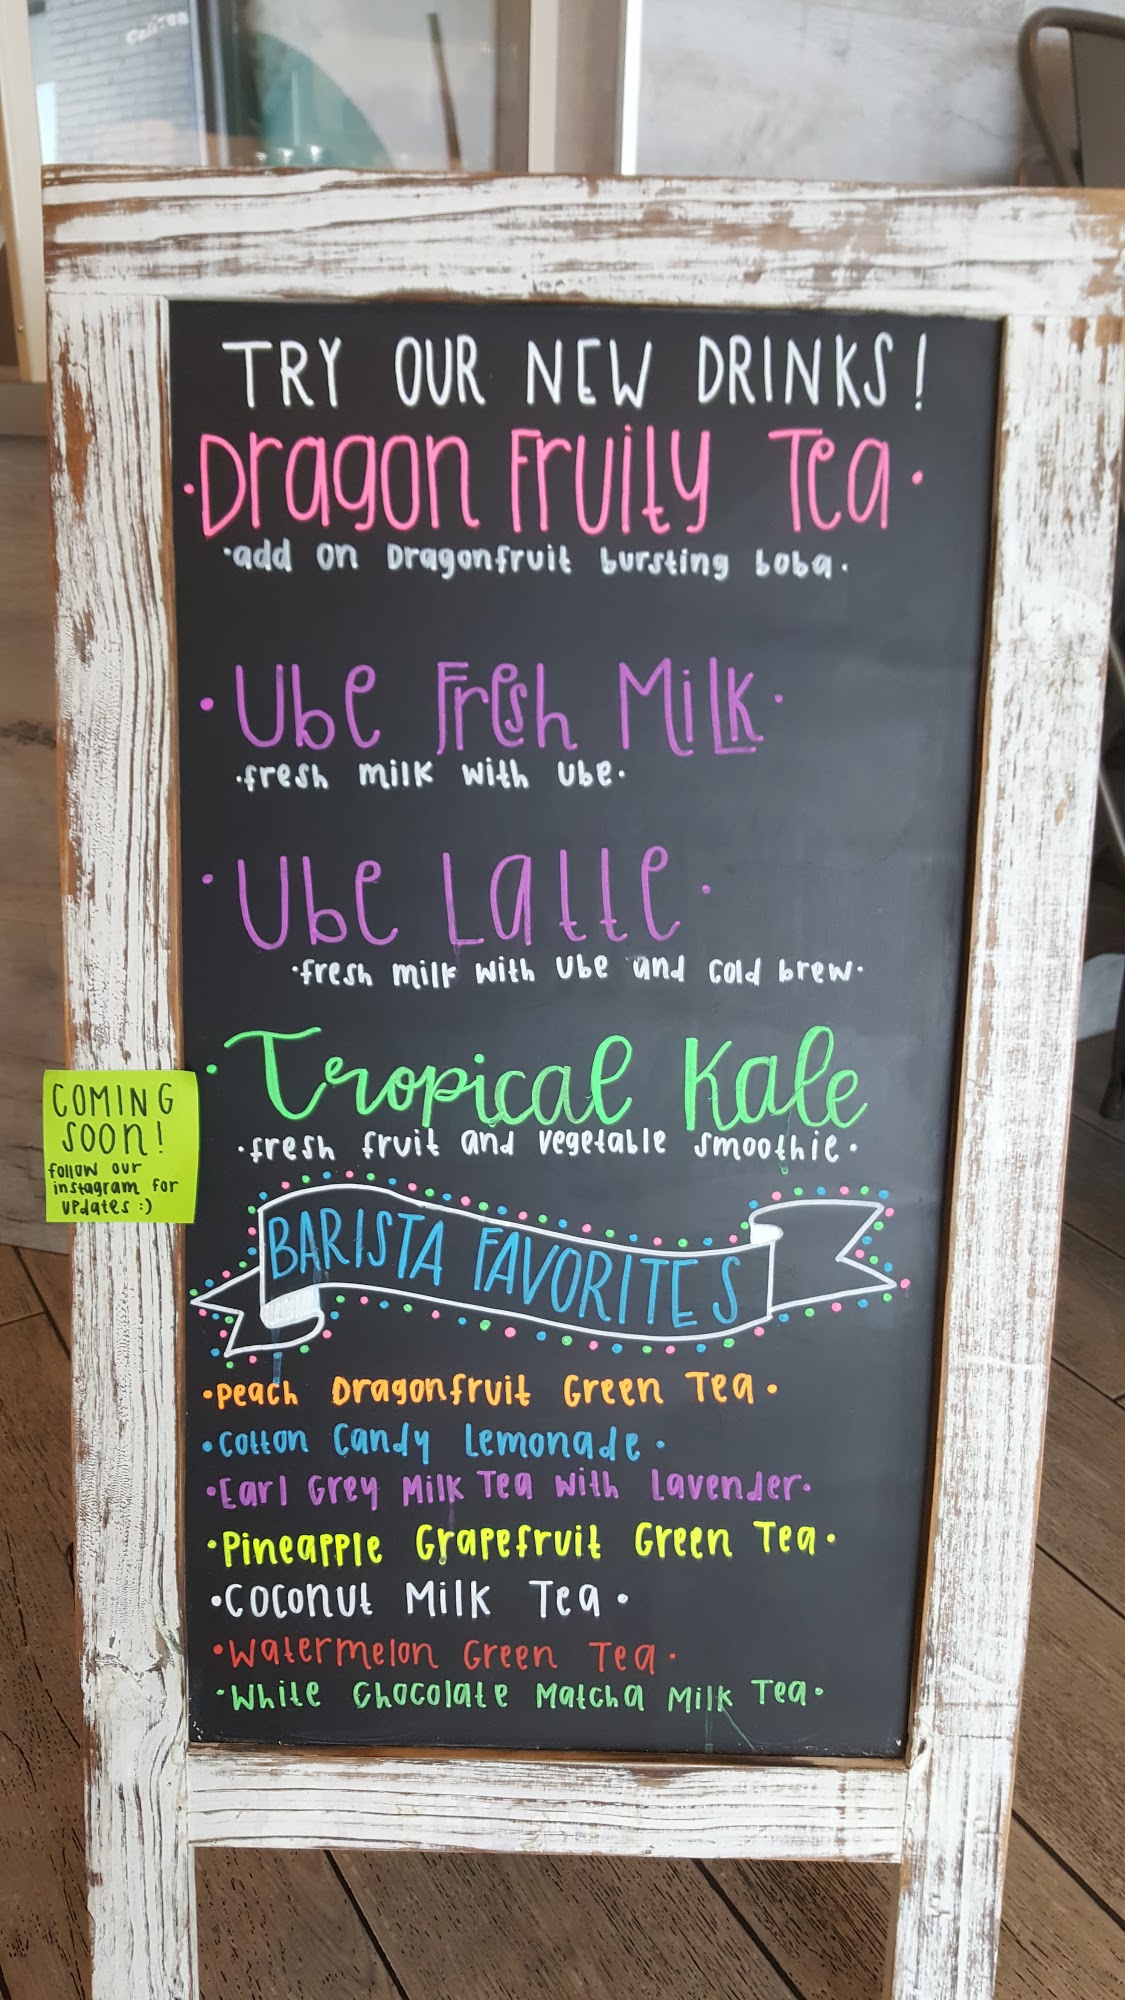 TRY OUR NEW DRINKS!
·Dragon Fruity Tea·
·add on Dragonfruit bursting boba·
·Ube Fresh Milk·
·fresh milk with ube·
·Ube Latte·
·fresh milk with ube and cold brew·
·Tropical Kale
·fresh fruit and vegetable smoothie·
COMING
SOON!
follow our
instagram for
updates :)
BARISTA FAVORITES
·Peach Dragonfruit Green Tea·
·Cotton Candy Lemonade·
·Earl Grey Milk Tea with Lavender·
·Pineapple Grapefruit Green Tea·
·Coconut Milk Tea·
·Watermelon Green Tea·
·White Chocolate Matcha Milk Tea·